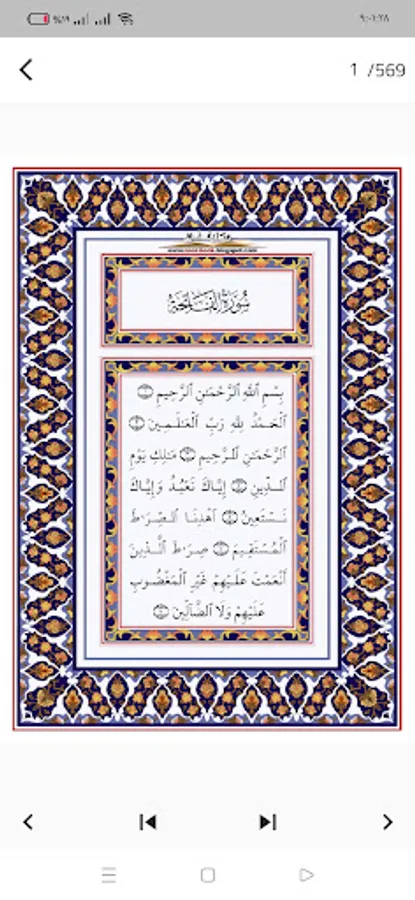 1 /569
سُورَةُ الفَاتِحَةِ
بِسْمِ ٱللَّهِ ٱلرَّحْمَٰنِ ٱلرَّحِيمِ ۝
ٱلْحَمْدُ لِلَّهِ رَبِّ ٱلْعَٰلَمِينَ ۝
ٱلرَّحْمَٰنِ ٱلرَّحِيمِ ۝ مَٰلِكِ يَوْمِ
ٱلدِّينِ ۝ إِيَّاكَ نَعْبُدُ وَإِيَّاكَ
نَسْتَعِينُ ۝ ٱهْدِنَا ٱلصِّرَٰطَ
ٱلْمُسْتَقِيمَ ۝ صِرَٰطَ ٱلَّذِينَ
أَنْعَمْتَ عَلَيْهِمْ غَيْرِ ٱلْمَغْضُوبِ
عَلَيْهِمْ وَلَا ٱلضَّآلِّينَ ۝